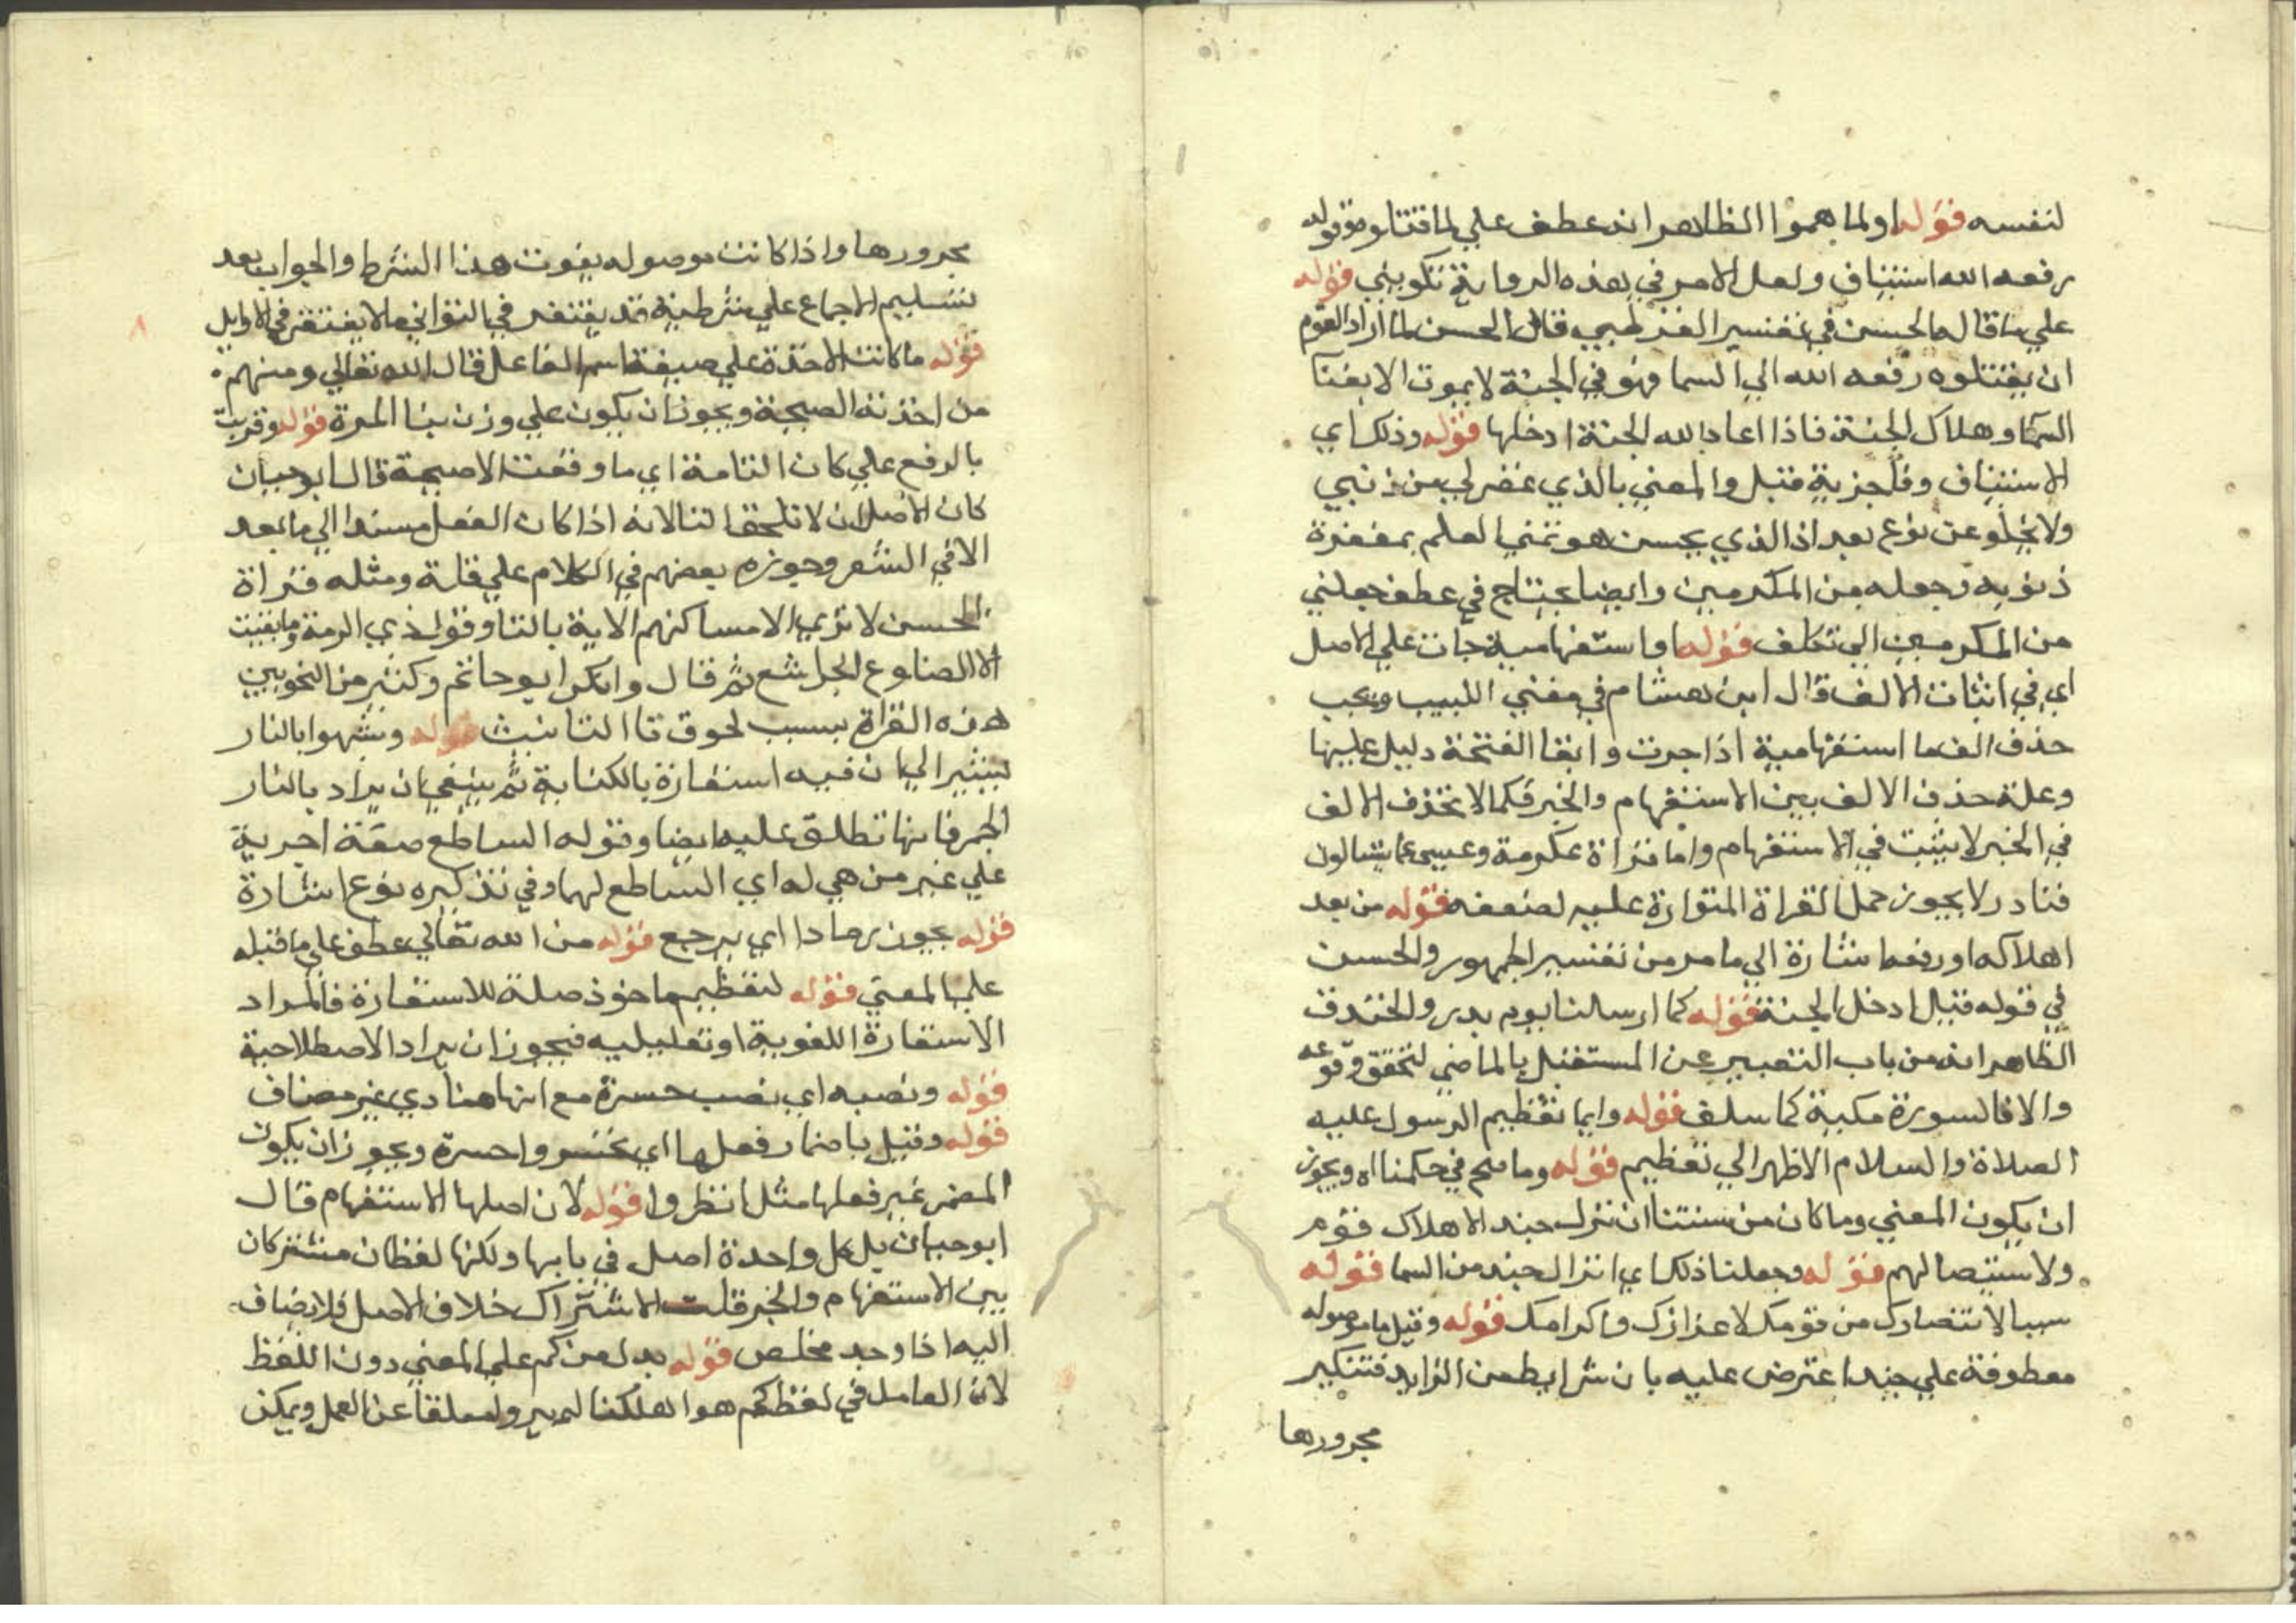 لنفسه قوله او لما هموا الظاهر انه عطف علي لما قتلوه وقوله
رفعه الله استيناف ولعل الامر في هذه الرواية تكويني قوله
علي ما قاله الحسن في تفسير القرطبي قال الحسن لما اراد القوم
ان يقتلوه رفعه الله الي السما فهو في الجنة لا يموت الا بفنا
السما وهلاك الجنة فاذا اعاد الله الجنة ادخلها قوله وذلك اي
الاستيناف قبل والمعني بالذي غفر لي من ذنبي
ولا يخلو عن نوع بعد اذ الذي يحسن هو تمني العلم بمغفرة
ذنوبه وجعله من المكرمين وايضا يحتاج في عطف جعلني
من المكرمين الي تكلف قوله او استفهامية جات علي الاصل
اي في اثبات الالف قال ابن هشام في مغني اللبيب ويجب
حذف الف ما استفهامية اذا جرت وابقا الفتحة دليل عليها
وعلة حذف الالف بين الاستفهام والخبر فكما لا تحذف الالف
في الخبر لا يثبت في الاستفهام واما قراة عكرمة وعيسي عما يتسالون
فنادر لا يجوز حمل القراة المتواترة عليه لضعفه قوله من بعد
اهلاكه او رفعه اشارة الي ما مر من تفسير الجمهور والحسن
في قوله قيل ادخل الجنة قوله كما ارسلنا يوم بدر والخندق
الظاهر انه من باب التعبير عن المستقبل بالماضي لتحقق وقوعه
والا فالسورة مكية كما سلف قوله وايما تعظيم الرسول عليه
الصلاة والسلام الاظهر الي تعظيم قوله وما صح في حكمنا اه ويجوز
ان يكون المعني وما كان من سنتنا ان ننزل جند الاهلاك قوم
ولاستيصالهم قوله وجعلنا ذلك اي انزال جند من السما قوله
سببا لانتصارك من قومك لاعزازك واكرامك قوله وقيل ما موصوله
معطوفة علي جند اعترض عليه بان شرايط من الزايد فتنكير
مجرورها
مجرورها واذا كانت موصوله يفوت هذا الشرط والجواب بعد
تسليم الاجماع علي شرطية قد يغتفر في الثواني ما لا يغتفر في الاوايل
قوله ما كانت الاخذة علي صيغة اسم الفاعل قال الله تعالي ومنهم
من اخذته الصيحة ويجوز ان يكون علي وزن بنا المرة قوله وقريت
بالرفع علي كان التامة اي ما وقعت الا صيحة قال ابو حيان
كان الاصل ان لا تلحق التا لانه اذا كان الفعل مسندا الي ما بعد
الا في الشعر وجوزه بعضهم في الكلام علي قلة ومثله قراة
الحسن لا تري الا مساكنهم الاية بالتا وقول ذي الرمة وما بقيت
الا الضلوع الجراشع ثم قال وانكر ابو حاتم وكثير من النحويين
هذه القراة بسبب لحوق تا التانيث قوله وشبهوا بالنار
يشير الي ان فيه استعارة بالكناية ثم ينبغي ان يراد بالنار
الجمر فانها تطلق عليه ايضا وقوله الساطع صفة اجرية
علي غير من هي له اي الساطع لهبها وفي تذكيره نوع اشارة
قوله يجوز رمادا اي يرجع قوله من الله تعالي عطف علي ما قبله
علي المعني قوله لتعظيم ما خوذ صلة للاستعارة فالمراد
الاستعارة اللغوية او تعليليه فيجوز ان يراد الاصطلاحية
قوله ونصبه اي نصب حسرة مع انها منادي غير مضاف
قوله وقيل باضمار فعلها اي تحسروا حسرة ويجوز ان يكون
المضمر غير فعلها مثل انظروا قوله لان اصلها الاستفهام قال
ابو حيان بل كل واحدة اصل في بابها ولكنها لفظان مشتركان
بين الاستفهام والخبر قلت الاشتراك خلاف الاصل فلا يضاف
اليه اذا وجد مخلص قوله بدل من كم علي المعني دون اللفظ
لان العامل في لفظ كم هو اهلكنا لم يروا معلقا عن العمل ويمكن